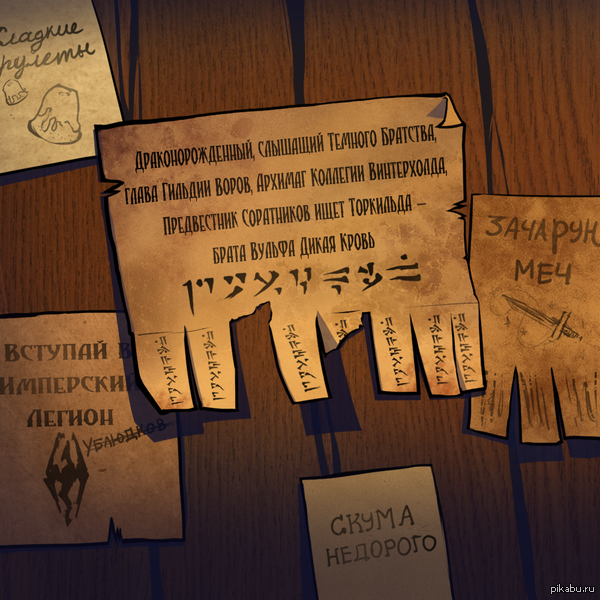 Сладкие
рулеты
Драконорожденный, слышащий Темного Братства,
глава Гильдии Воров, Архимаг Коллегии Винтерхолда,
Предвестник Соратников ищет Торкильда –
брата Вульфа Дикая Кровь
ЗАЧАРУЮ
МЕЧ
ВСТУПАЙ В
ИМПЕРСКИЙ
ЛЕГИОН
УБЛЮДКОВ
СКУМА
НЕДОРОГО
pikabu.ru